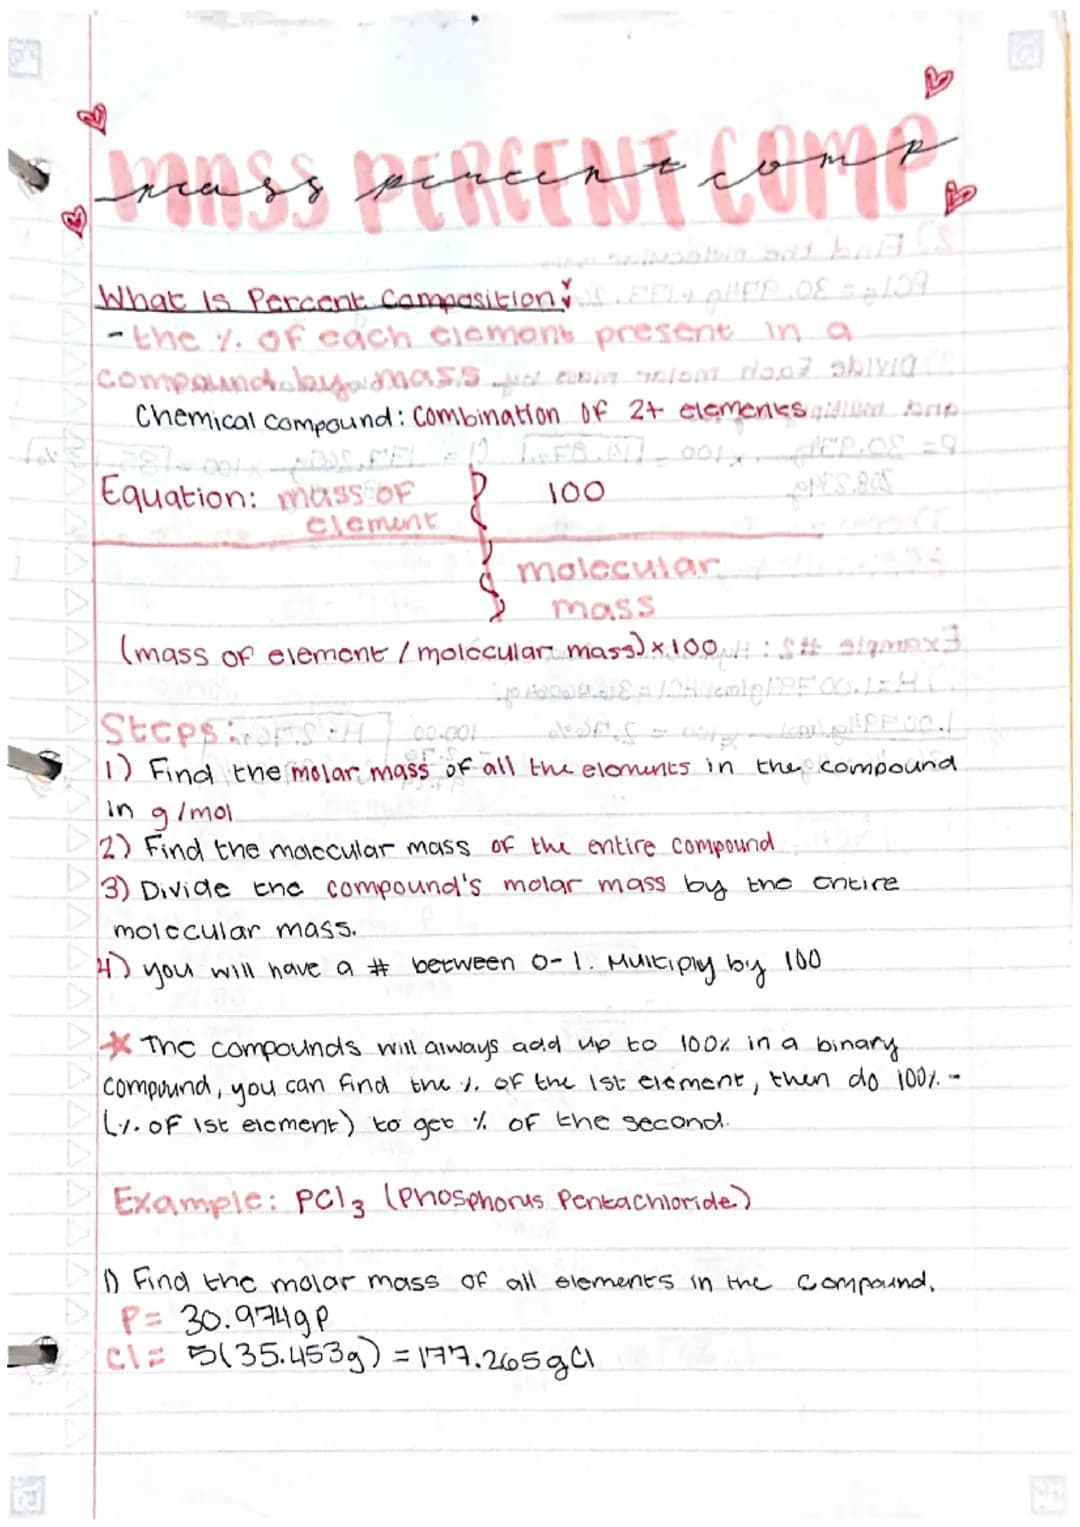 MASS PERCENT COMP
mass percent comp
What Is Percent Composition:
- the % of each element present in a
compound by mass
Chemical compound: Combination of 2+ elements
Equation: mass of 100
element
molecular
mass
(mass of element / molecular mass) x 100
Steps:
1) Find the molar mass of all the elements in the compound
in g/mol
2) Find the molecular mass of the entire compound
3) Divide the compound's molar mass by the entire
molecular mass.
4) you will have a # between 0-1. Multiply by 100
* The compounds will always add up to 100% in a binary
compound, you can find the % of the 1st element, then do 100% -
(% of 1st element) to get % of the second.
Example: PCl3 (Phosphorus Pentachloride)
1) Find the molar mass of all elements in the compound.
P= 30.974g P
Cl= 5(35.453g) = 177.265g Cl